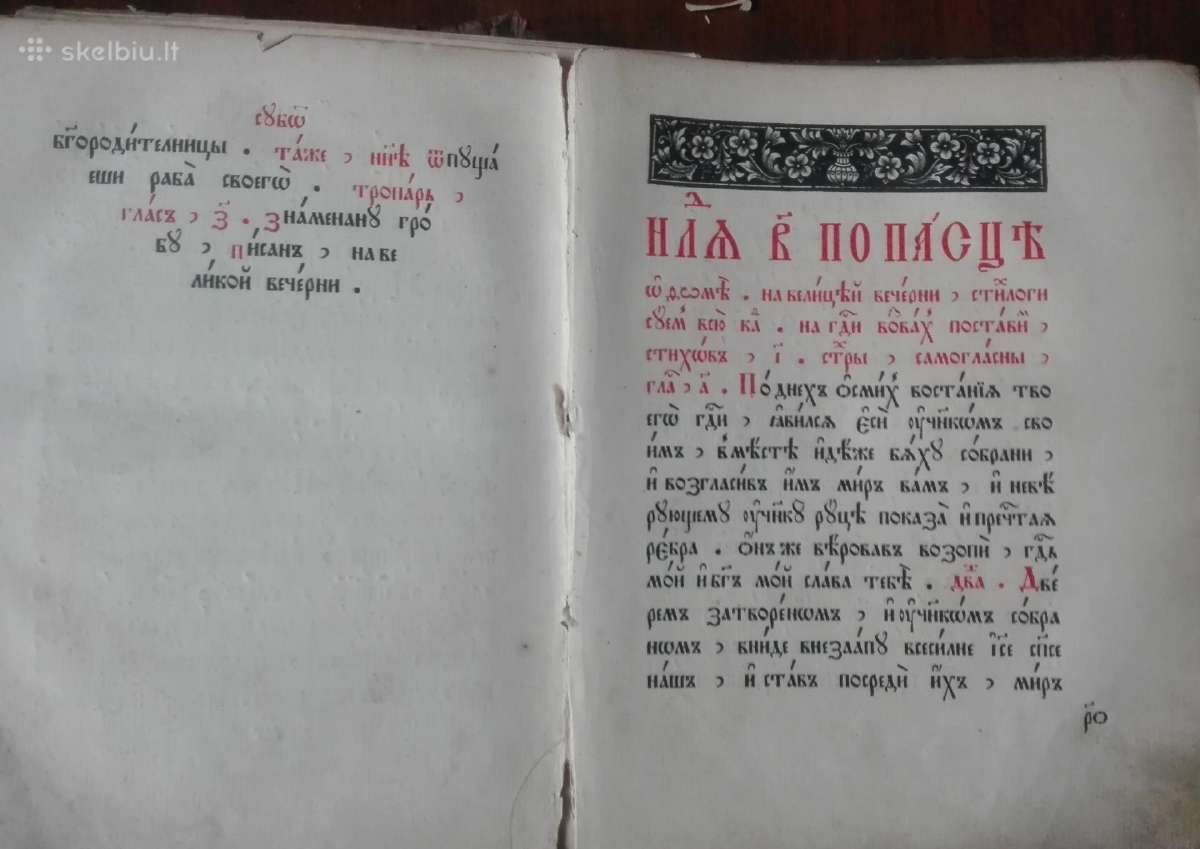 skelbiu.lt
субѡⷮ
бг҃ороди́телницы . та́же , нн҃ѣ ѿпуща́
еши раба̀ своегѡ̀ . тропа́рь ,
гла́съ , з҃ . Зна́менану гро́
бу , пи́санъ , на ве
ли́кой вече́рни .
Нлⷣѧ в҃ по па́сцѣ
ѡ҆ ѳомѣ̀ . на вели́цѣй вече́рни , стиⷯлоги
суеⷨ всю̀ каⷴ . на гдⷭ҇и возваⷯ поставиⷨ ,
стихѡ́въ , і҃ . стⷯры , самогла́сны ,
глаⷭ , а҃ . По дне́хъ ѻ҆сми́хъ воста́нїѧ тво
егѡ̀ гдⷭ҇и , ꙗ҆ви́лсѧ є҆сѝ ᲂу҆чн҃кѡмъ сво
и́мъ , в мѣ́стѣ и҆дѣ́же бѧ́ху со́брани ,
и҆ возгласи́въ и҆̀мъ ми́ръ ва́мъ , и҆ невѣ́
рующему ᲂу҆чн҃ку ру́цѣ показа̀ и҆ пречⷭ҇таѧ
ре́бра . Ѻ҆́нъ же вѣ́ровавъ возопѝ , гдⷭ҇ь
мо́й и҆ бг҃ъ мо́й сла́ва тебѣ̀ . двⷤа . Две́
ремъ затворе́нѡмъ , и҆ ᲂу҆чн҃кѡмъ со́бра
нѡмъ , вни́де внеза́апу всеси́лне і҆с҃е сп҃се
на́шъ , и҆ ста́въ посредѝ и҆́хъ , ми́ръ
р҃о